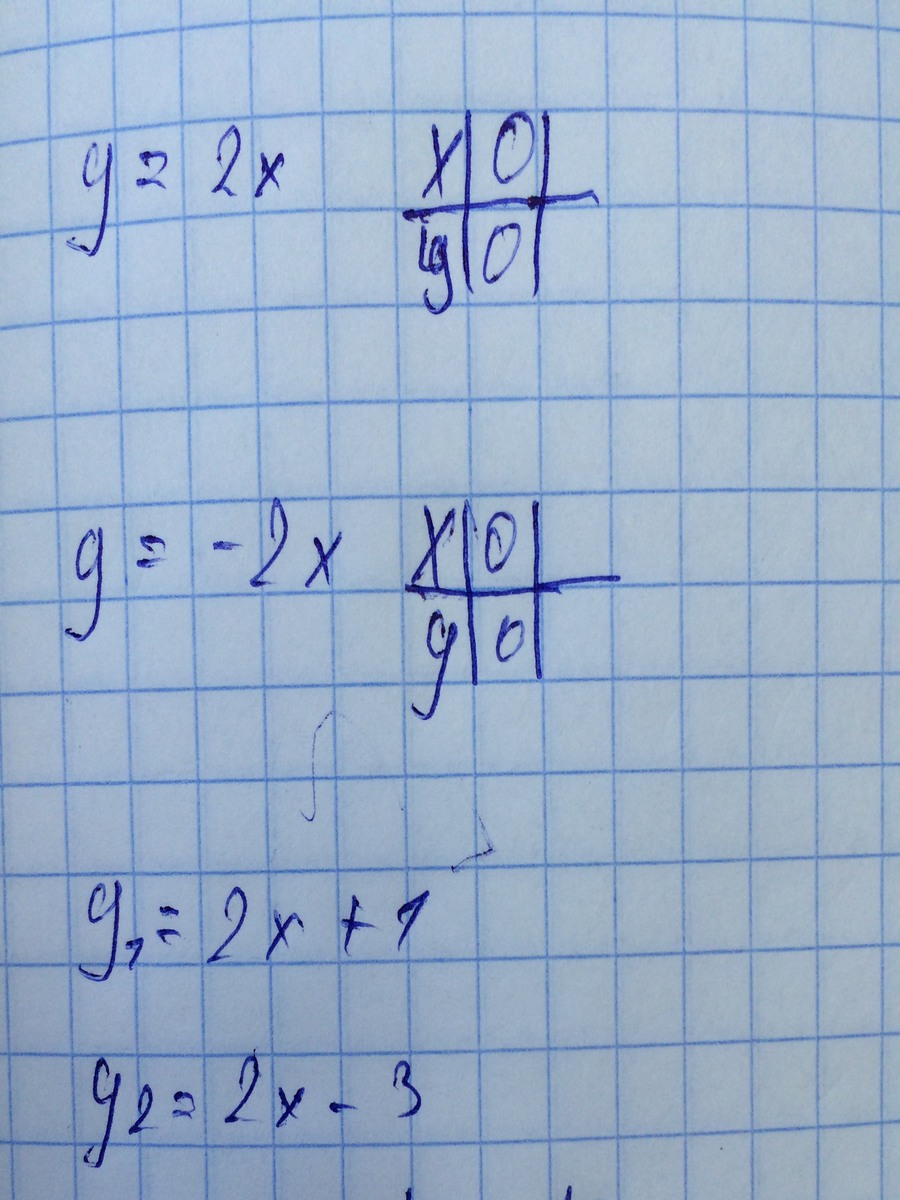 y = 2x x 0
y 0
y = -2x x 0
y 0
y₁ = 2x + 1
y₂ = 2x - 3